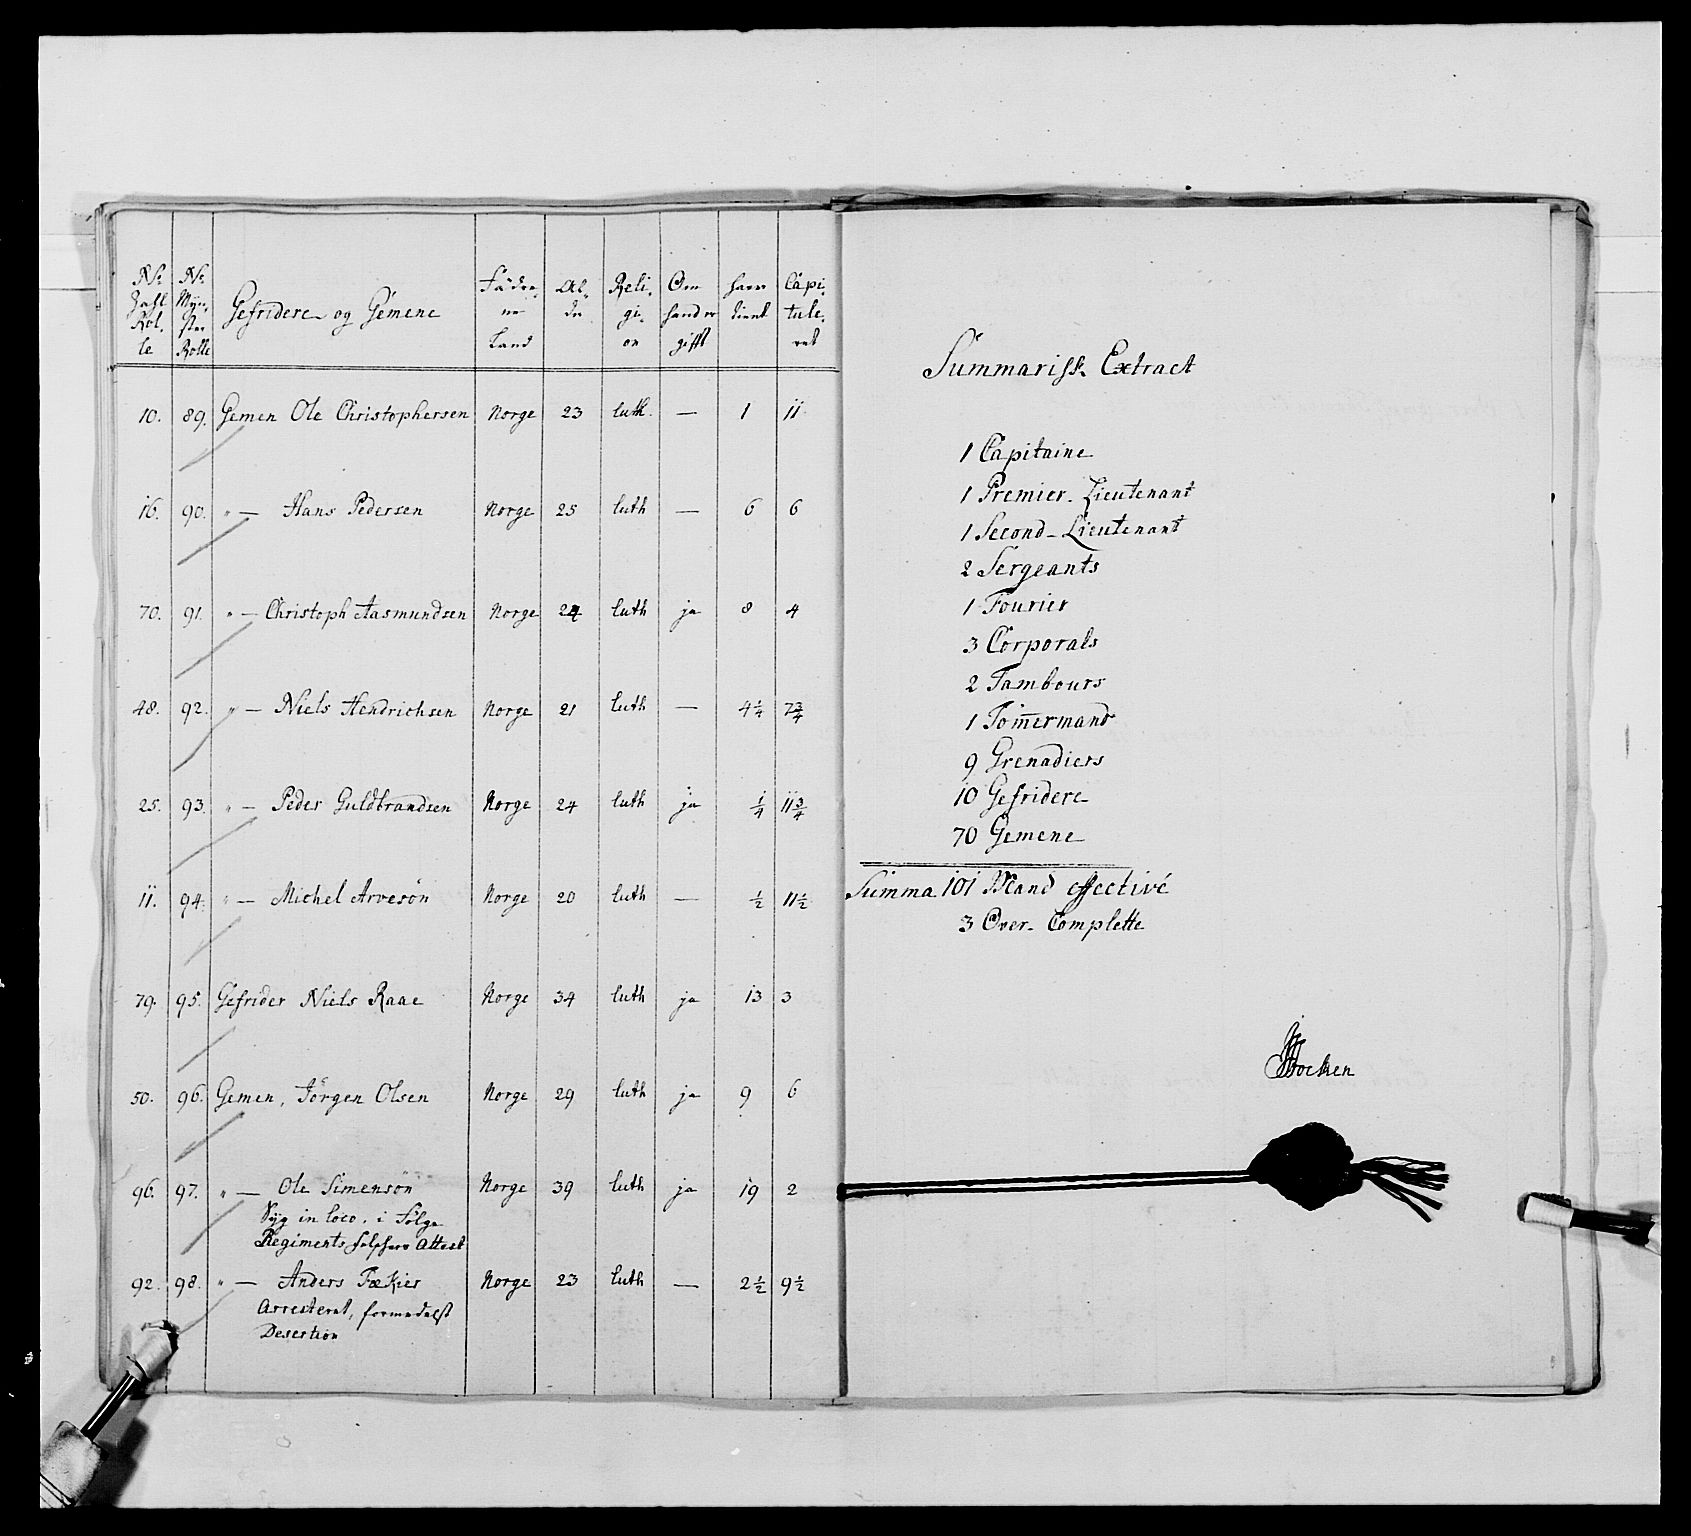 No Zahl Rol- le | No Mÿn- ster Rolle | Gefridere og Gemene | Fædre- ne Land | Al- der | Reli- gi- on | Om hand er gifft | haver tient | Capi- tule- ret
10. 89. Gemen Ole Christophersen Norge 23 luth. — 1 11
16. 90. " — Hans Pedersen Norge 25 luth — 6 6
70. 91. " — Christoph Aasmundsen Norge 24 luth ja 8 4
48. 92. " — Niels Hendrichsen Norge 21 luth — 4¼ 7¾
25. 93. " — Peder Guldbrandsen Norge 24 luth ja ¼ 11¾
11. 94. " — Michel Arvesön Norge 20 luth — ½ 11½
79. 95. Gefrider Niels Raae Norge 34 luth ja 13 3
50. 96. Gemen, Jörgen Olsen Norge 29 luth ja 9 6
96. 97. " — Ole Simensön Norge 39 luth ja 19 2
Syg in loco, i Fölge
Regiments Attest
92. 98. " — Anders Fækier Norge 23 luth — 2½ 9½
Arresteret, formedelst
Desertion
Summarisk Extract
1 Capitaine
1 Premier-Lieutenant
1 Second-Lieutenant
2 Sergeants
1 Fourier
3 Corporals
2 Tambours
1 Tom̅ermand
9 Grenadiers
10 Gefridere
70 Gemene
Summa 101 Mand effectivé
3 Over-Complette